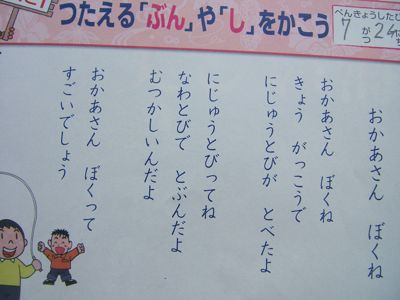 つたえる「ぶん」や「し」をかこう
べんきょうしたひ
7がつ24にち
おかあさん ぼくね
おかあさん ぼくね
きょう がっこうで
にじゅうとびが とべたよ
にじゅうとびってね
なわとびで とぶんだよ
むつかしいんだよ
おかあさん ぼくって
すごいでしょう